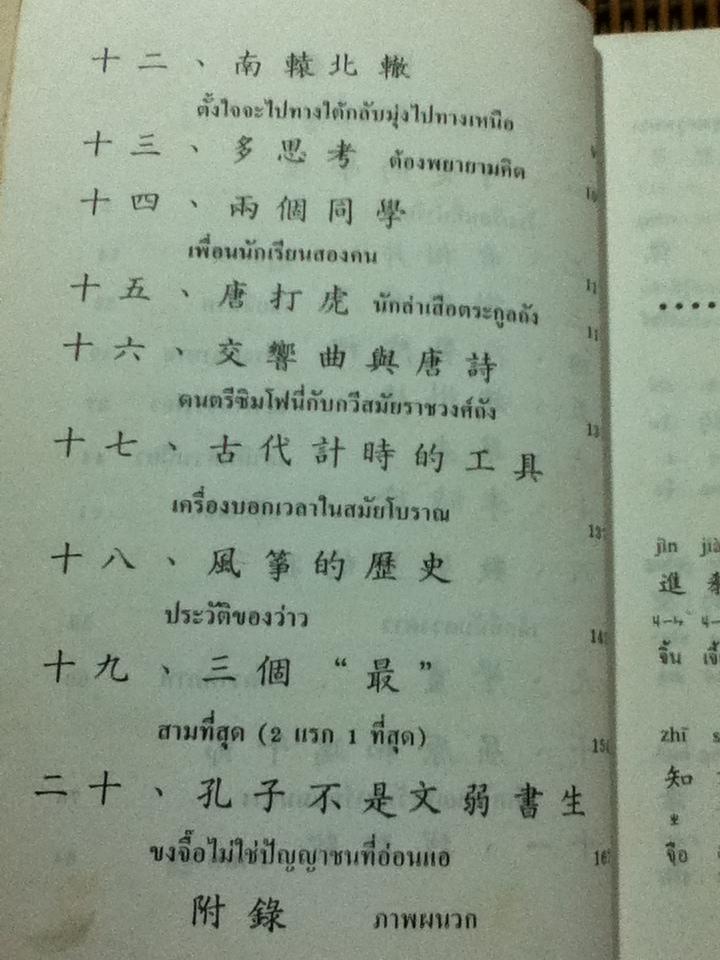 十二、南轅北轍
ตั้งใจจะไปทางใต้กลับมุ่งไปทางเหนือ
十三、多思考 ต้องพยายามคิด
十四、兩個同學
เพื่อนนักเรียนสองคน
十五、唐打虎 นักล่าเสือตระกูลถัง
十六、交響曲與唐詩
ดนตรีซิมโฟนี่กับกวีสมัยราชวงศ์ถัง
十七、古代計時的工具
เครื่องบอกเวลาในสมัยโบราณ
十八、風箏的歷史
ประวัติของว่าว
十九、三個“最”
สามที่สุด (2 แรก 1 ที่สุด)
二十、孔子不是文弱書生
ขงจื๊อไม่ใช่ปัญญาชนที่อ่อนแอ
附錄 ภาพผนวก
jìn
進
จิ้น
zhī
知
ㄓ
จือ